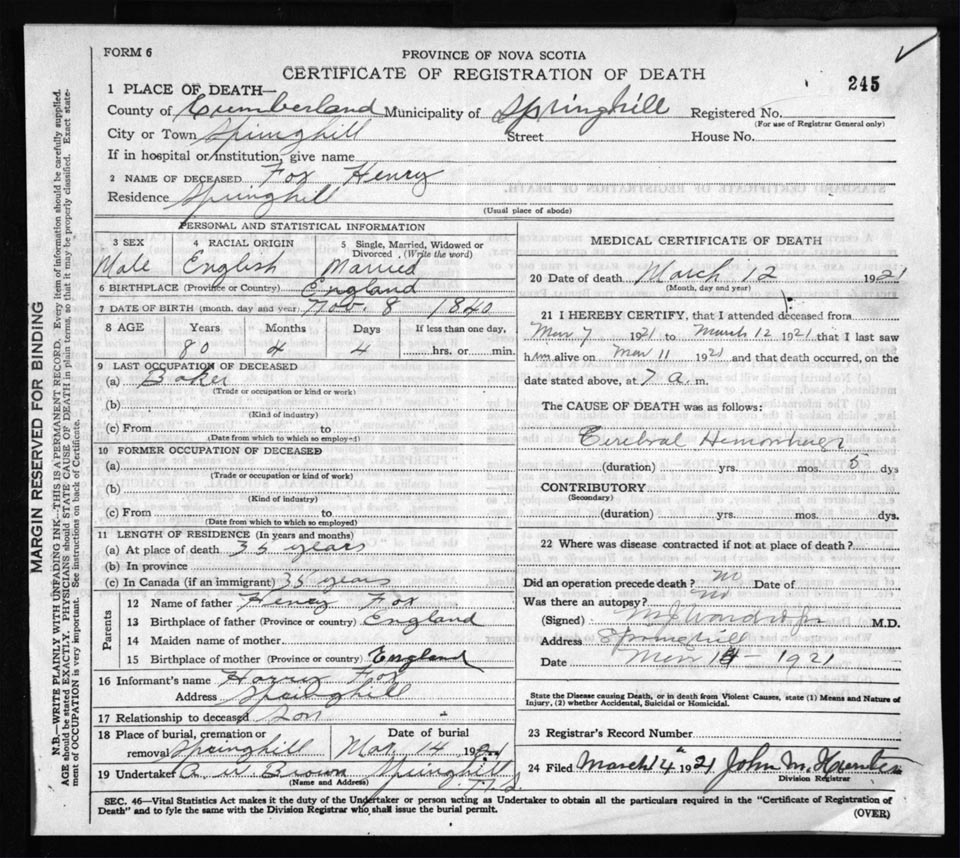 FORM 6
PROVINCE OF NOVA SCOTIA
CERTIFICATE OF REGISTRATION OF DEATH
245
1 PLACE OF DEATH—
County of Cumberland Municipality of Springhill Registered No.
(For use of Registrar General only)
City or Town Springhill Street House No.
If in hospital or institution, give name
2 NAME OF DECEASED Fox Henry
Residence Springhill
(Usual place of abode)
PERSONAL AND STATISTICAL INFORMATION
3 SEX 4 RACIAL ORIGIN 5 Single, Married, Widowed or Divorced, (Write the word)
Male English Married
6 BIRTHPLACE (Province or Country) England
7 DATE OF BIRTH (month, day and year) Nov. 8 1840
8 AGE Years Months Days If less than one day,
80 4 4 hrs. or min.
9 LAST OCCUPATION OF DECEASED
(a) Baker
(Trade or occupation or kind or work)
(b)
(Kind of industry)
(c) From to
(Date from which to which so employed)
10 FORMER OCCUPATION OF DECEASED
(a)
(Trade or occupation or kind of work)
(b)
(Kind of industry)
(c) From to
(Date from which to which so employed)
11 LENGTH OF RESIDENCE (In years and months)
(a) At place of death 35 years
(b) In province
(c) In Canada (if an immigrant) 35 years
Parents
12 Name of father Henry Fox
13 Birthplace of father (Province or country) England
14 Maiden name of mother
15 Birthplace of mother (Province or country) England
16 Informant's name Harry Fox
Address Springhill
17 Relationship to deceased Son
18 Place of burial, cremation or Date of burial
removal Springhill Mar 14 19
19 Undertaker A Brown Springhill
(Name and Address) N.S
MEDICAL CERTIFICATE OF DEATH
20 Date of death March 12 1921
(Month, day and year)
21 I HEREBY CERTIFY, that I attended deceased from
Mar 7 1921 to March 12 1921 that I last saw
him alive on Mar 11 1921 and that death occurred, on the
date stated above, at 7 a. m.
The CAUSE OF DEATH was as follows:
Cerebral
(duration) yrs. mos. 5 dys
CONTRIBUTORY
(Secondary)
(duration) yrs. mos. dys.
22 Where was disease contracted if not at place of death?
Did an operation precede death? no Date of
Was there an autopsy? no
(Signed) M.D.
Address Springhill
Date Mar 1921
State the Disease causing Death, or in death from Violent Causes, state (1) Means and Nature of
Injury, (2) whether Accidental, Suicidal or Homicidal.
23 Registrar's Record Number
24 Filed March 14 1921 John M. Hunter
Division Registrar
SEC. 46—Vital Statistics Act makes it the duty of the Undertaker or person acting as Undertaker to obtain all the particulars required in the "Certificate of Registration of
Death" and to fyle the same with the Division Registrar who shall issue the burial permit.
(OVER)
MARGIN RESERVED FOR BINDING
N.B.—WRITE PLAINLY WITH UNFADING INK—THIS IS A PERMANENT RECORD. Every item of information should be carefully supplied.
AGE should be stated EXACTLY. PHYSICIANS should STATE CAUSE OF DEATH in plain terms, so that it may be properly classified. Exact state-
ment of OCCUPATION is very important. See instructions on back of Certificate.